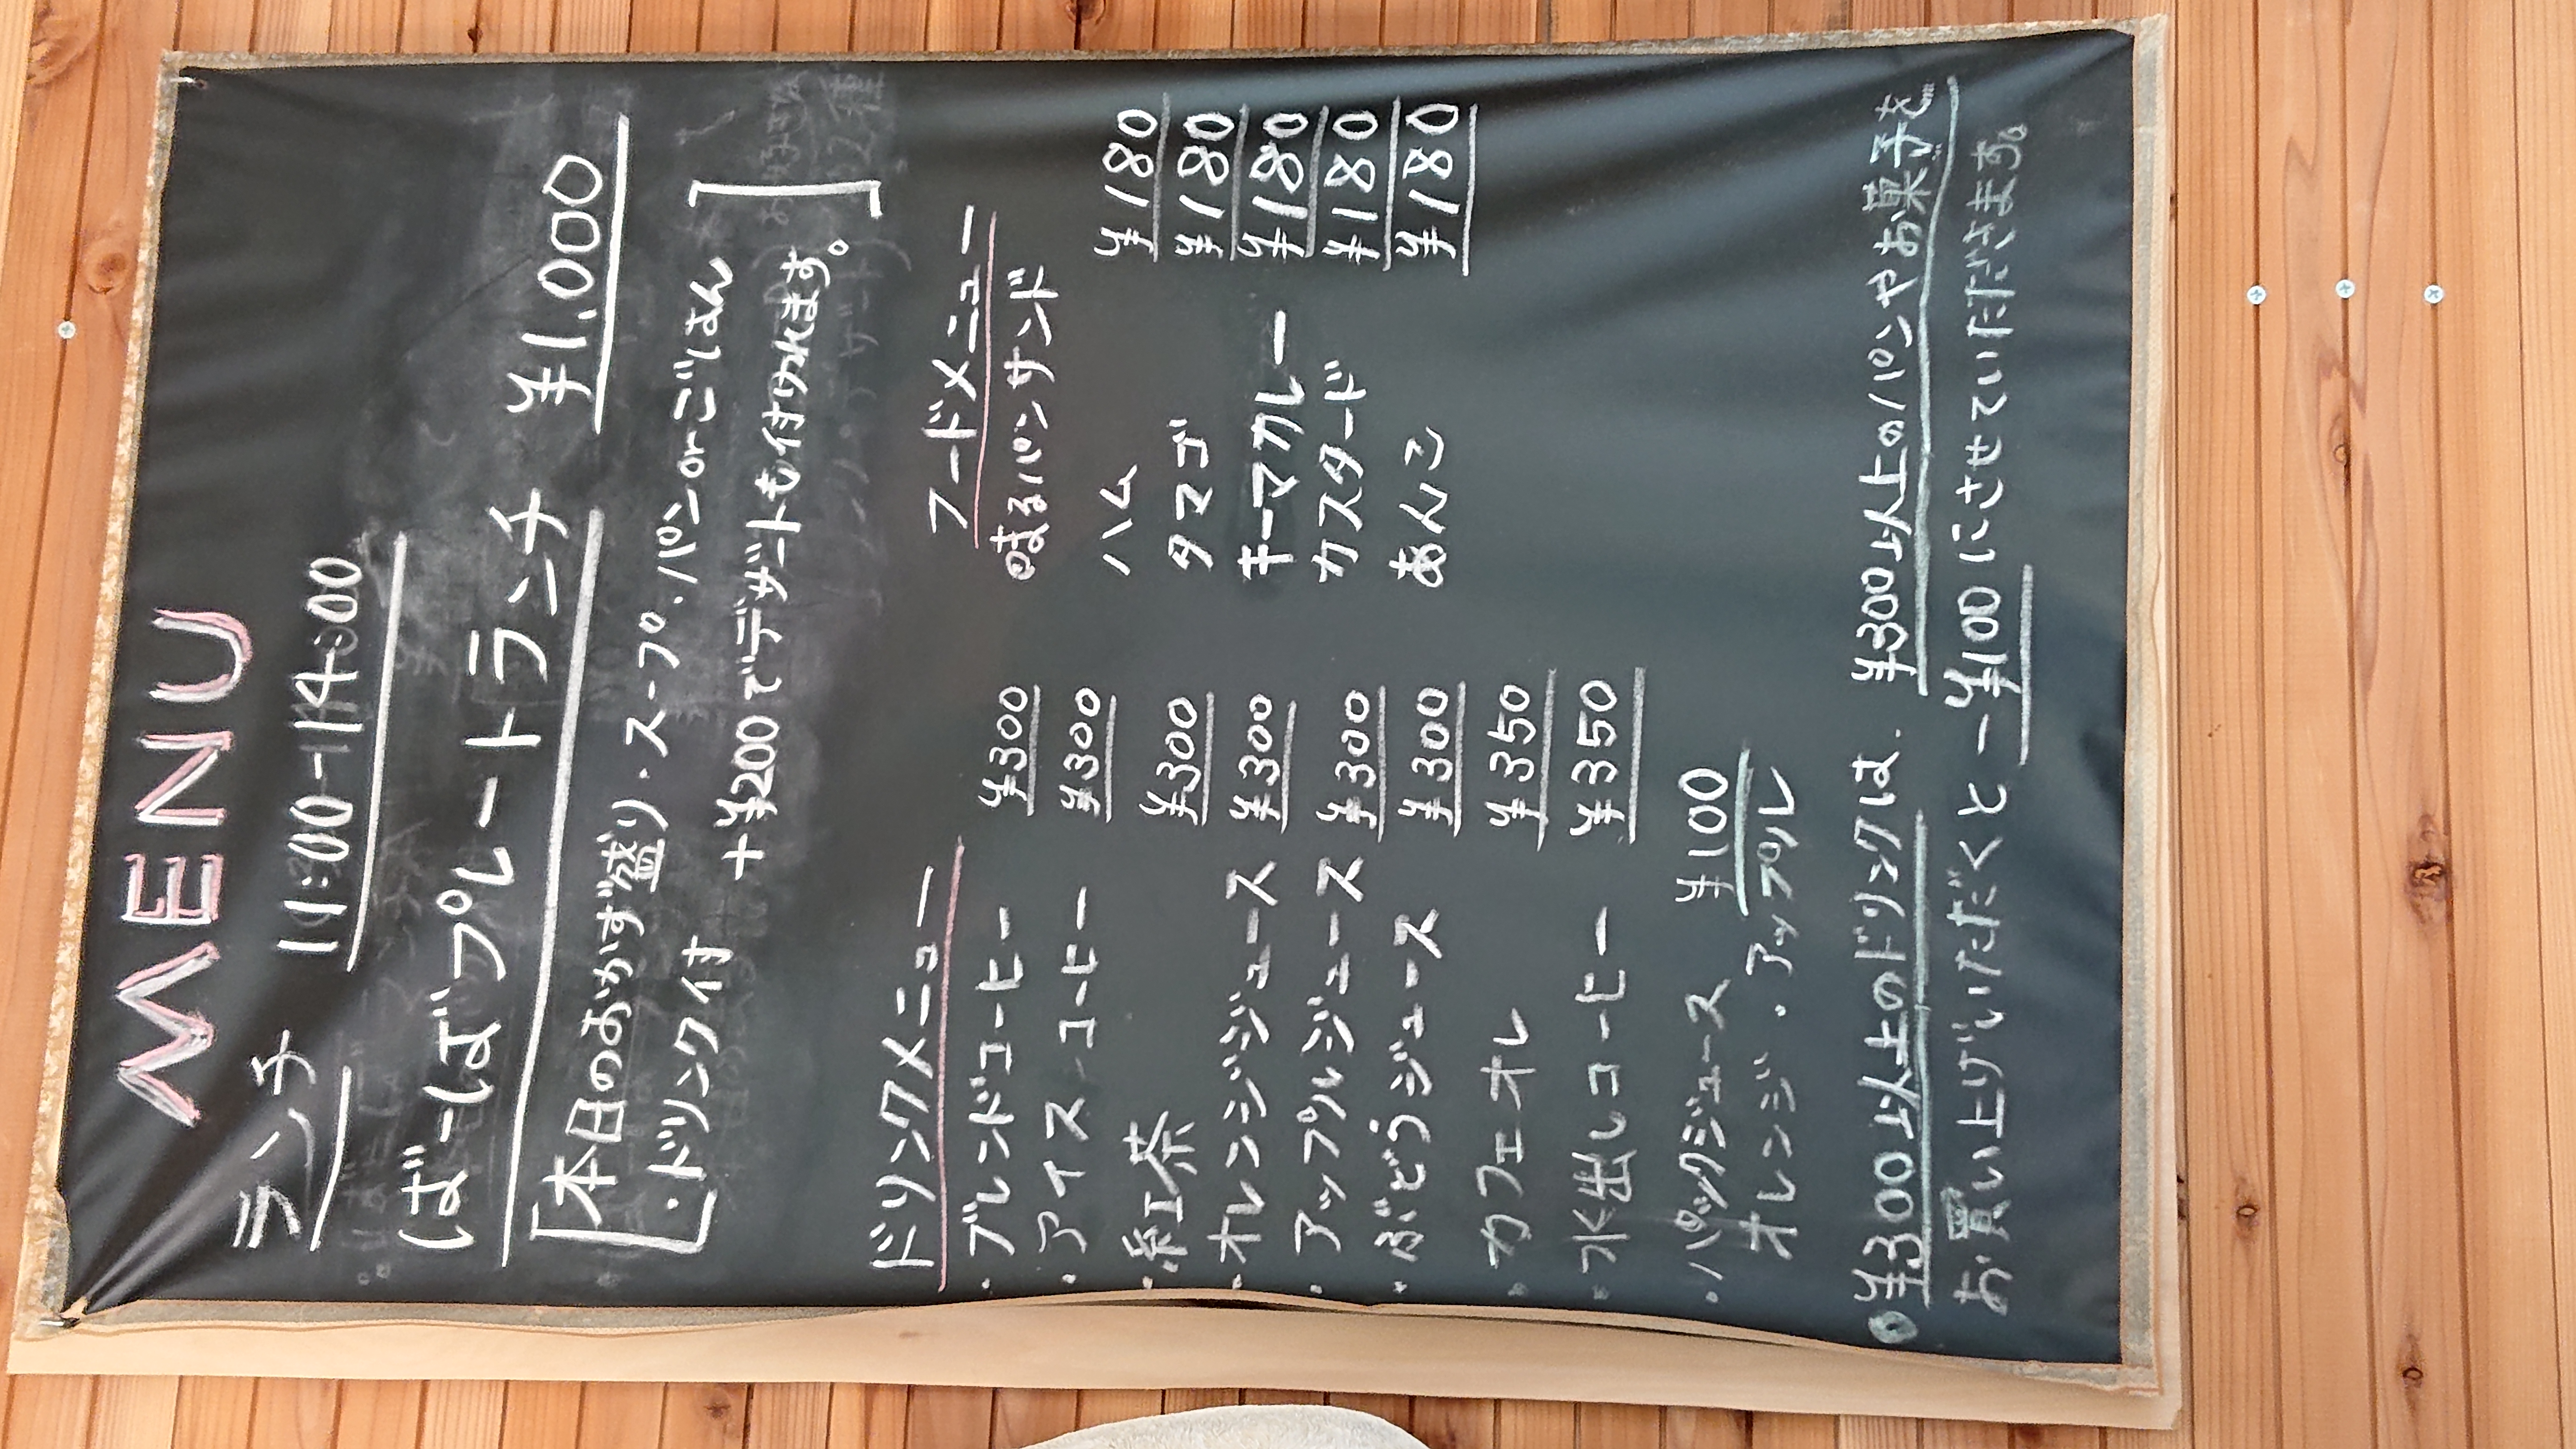 MENU
ランチ 11:00-14:00
ばーばプレートランチ ¥1,000
本日のおかず盛り・スープ・パンorごはん
・ドリンク付 +¥200でデザートも付けれます。
ドリンクメニュー
・ブレンドコーヒー ¥300
・アイスコーヒー ¥300
・紅茶 ¥300
・オレンジジュース ¥300
・アップルジュース ¥300
・ぶどうジュース ¥300
・カフェオレ ¥350
・水出しコーヒー ¥350
・パックジュース ¥100
オレンジ・アップル
フードメニュー
◎まるパンサンド
ハム ¥180
タマゴ ¥180
キーマカレー ¥180
カスタード ¥180
あんこ ¥180
●¥300以上のドリンクは、¥300以上のパンやお菓子を
お買い上げいただくと-¥100にさせていただきます。